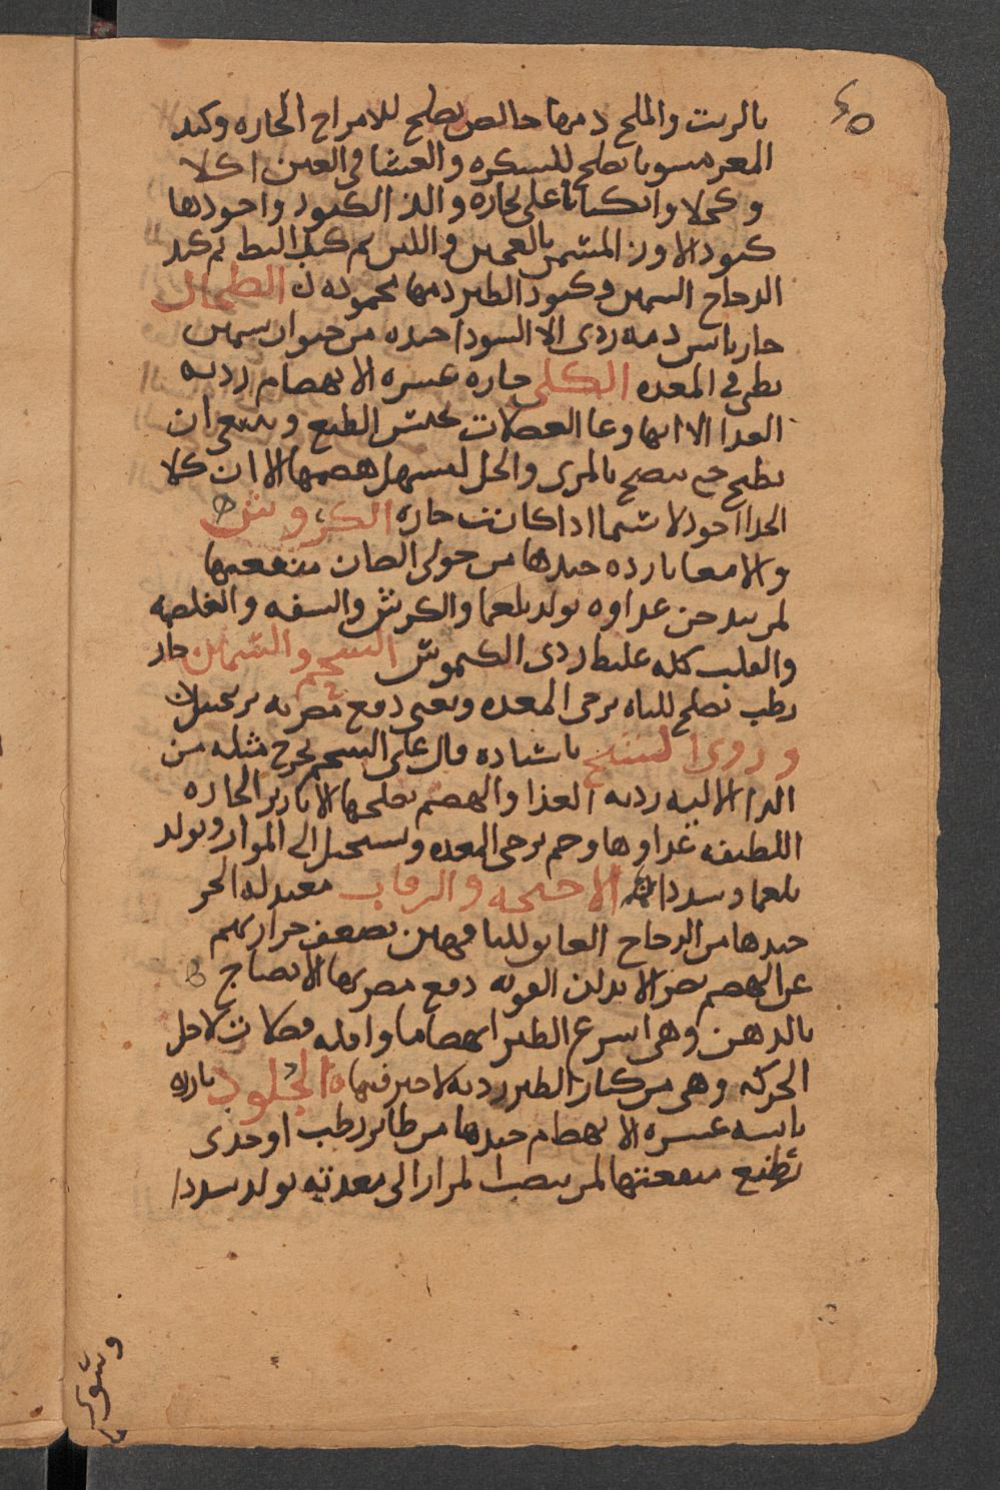 ٤٥
بالزيت والملح دمها خالص يصلح للامزاج الحاره وكبد
المعز مشويا يصلح للشبكره والعشا في العين اكلا
وكحلا وانكبابا على بخاره والذ الكبود واجودها
كبود الاوز المسمن بالعجين واللبن ثم كبد البط ثم كبد
الدجاج السمين وكبود الطير دمها محموده الطحال
حار يابس دمه ردي الا السودا جيده من حيوان سمين
بطي في المعده الكلي حاره عسره الانهضام رديه
الغدا الا انها وعا الفضلات تحبس الطبع وينبغي ان
تطبخ حتى تنضج بالمري والخل ليسهل هضمها الا ان كلا
الجدا اجود لا سيما اذا كانت حاره الكروش
والامعا بارده جيدها من حولي الضان منفعتها
لمن يدخن غداوه تولد بلغما والكرش والشفه والغلصمه
والقلب كله غليظ ردي الكيموس الشحم والسمين حار
رطب تصلح للباه يرخي المعده ويغثي دفع مضرته بزنجبيل
وروي باسناده قال على الشحم يخرج مثله من
الدا الاليه رديه الغذا والهضم يصلحها الابازير الحاره
اللطيفه غداوها وخم يرخي المعده ويستحيل الى المرار ويولد
بلغما وسددا الاجنحه والرقاب معتدله الحر
جيدها من الدجاج فهي تضعف حرارتهم
عن الهضم تضر الابدان القويه دفع مضرتها الانضاج
بالدهن وهي اسرع الطير انهضاما واقله فضلات لاجل
الحركه وهي من كبار الطير رديه لا خير فيها الجلود بارده
يابسه عسره الانهضام جيدها من طاير رطب او جدي
رضيع منفعتها لمن ينصب المرار الى معدته تولد سددا